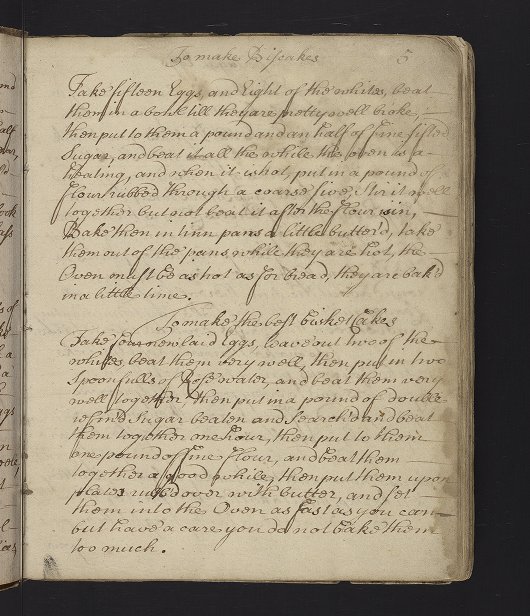 To make Biscakes 5
Take fifteen Eggs, and Eight of the whites, beat
them in a bowl till they are pretty well broke,
then put to them a pound and an half of fine sifted
Sugar, and beat it all the while the oven is a
heating, and when it is hot, put in a pound of
flour rubbed through a coarse sive, stir it well
together but not beat it after the flour is in,
Bake them in tinn pans a little butter'd, take
them out of the pans while they are hot, the
Oven must be as hot as for bread, they are bak'd
in a little time.
To make the best bisket Cakes
Take four new laid Eggs, leave out two of the
whites, beat them very well, then put in two
Spoonfulls of Rose water, and beat them very
well together, then put in a pound of double
refin'd Sugar beaten and Search'd and beat
them together one hour, then put to them
one pound of fine flour, and beat them
together a good while, then put them upon
plates rub'd over with butter, and set
them into the Oven as fast as you can
but have a care you do not bake them
too much.